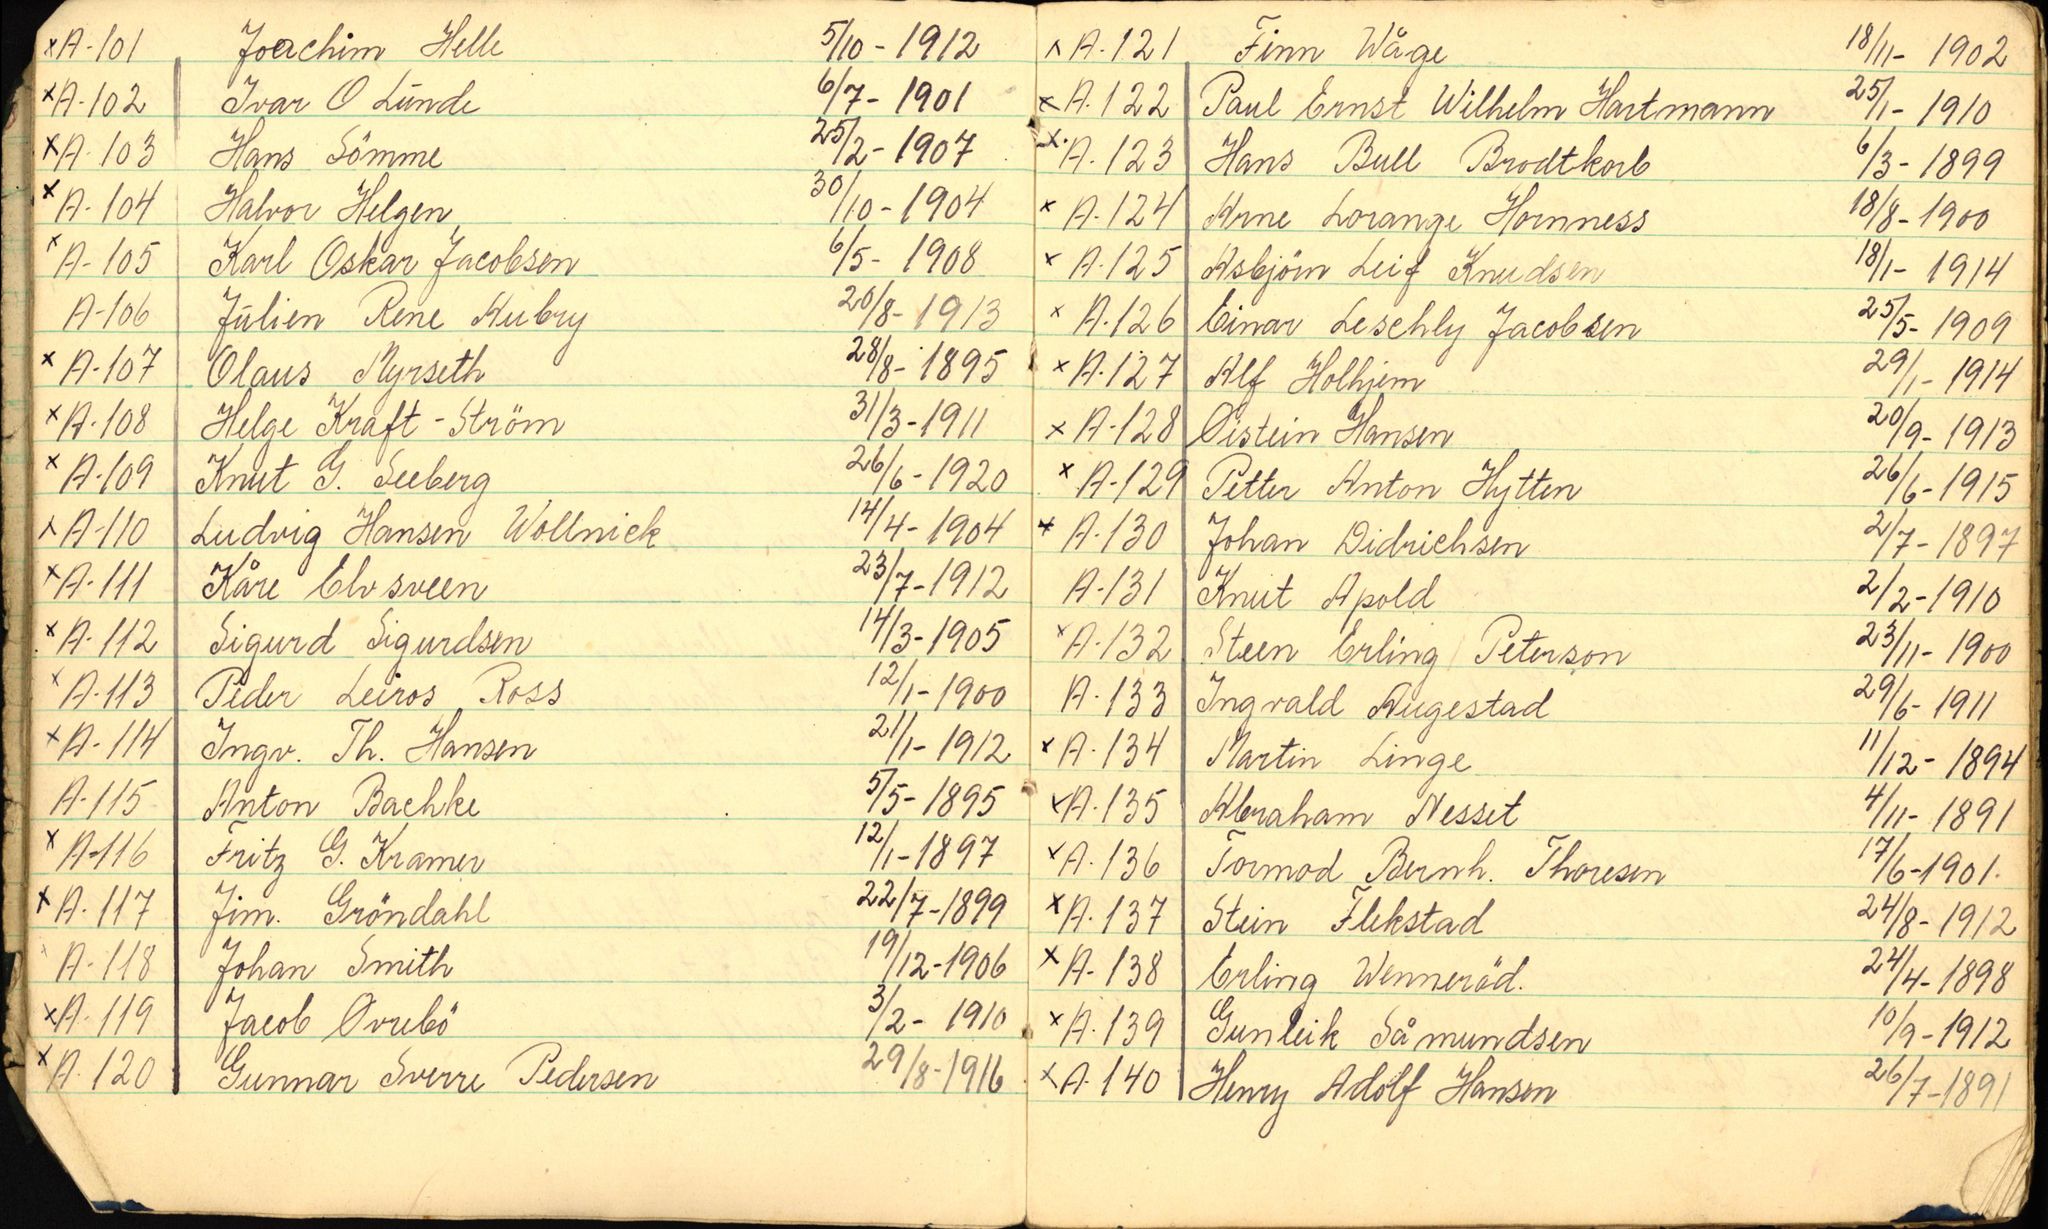 x A-101 Joachim Helle 5/10 - 1912
x A-102 Ivar O Lunde 6/7 - 1901
x A-103 Hans Sömme 25/2 - 1907
x A-104 Halvor Helgen 30/10 - 1904
x A-105 Karl Oskar Jacobsen 6/5 - 1908
A-106 Julien Rene Aubry 20/8 - 1913
x A-107 Olaus Myrseth 28/8 - 1895
x A-108 Helge Kraft-Ström 31/3 - 1911
x A-109 Knut G. Seeberg 26/6 - 1920
x A-110 Ludvig Hansen Wollnick 14/4 - 1904
x A-111 Kåre Elvsveen 23/7 - 1912
x A-112 Sigurd Sigurdsen 14/3 - 1905
x A-113 Peder Leiros Ross 12/1 - 1900
x A-114 Ingv. Th. Hansen 21/1 - 1912
A-115 Anton Bachke 5/5 - 1895
x A-116 Fritz G. Kramer 12/1 - 1897
x A-117 Jim. Gröndahl 22/7 - 1899
x A-118 Johan Smith 19/12 - 1906
x A-119 Jacob Ovrebö 3/2 - 1910
x A-120 Gunnar Sverre Pedersen 29/8 - 1916
x A-121 Finn Wåge 18/11 - 1902
x A-122 Paul Ernst Wilhelm Hartmann 25/1 - 1910
x A-123 Hans Bull Brodtkorb 6/3 - 1899
x A-124 Arne Lorange Hornness 18/8 - 1900
x A-125 Asbjörn Leif Knudsen 18/1 - 1914
x A-126 Einar Leschly Jacobsen 25/5 - 1909
x A-127 Alf Holhjem 29/1 - 1914
x A-128 Oistein Hansen 20/9 - 1913
x A-129 Petter Anton Hytten 26/6 - 1915
x A-130 Johan Didrichsen 2/7 - 1897
A-131 Knut Apold 2/2 - 1910
x A-132 Steen Erling Peterson 23/11 - 1900
A-133 Ingvald Augestad 29/6 - 1911
x A-134 Martin Linge 11/12 - 1894
x A-135 Abraham Nesset 4/11 - 1891
x A-136 Tormod Bernh. Thoresen 17/6 - 1901.
x A-137 Stein Flekstad 24/8 - 1912
x A-138 Erling Wenneröd. 24/4 - 1898
x A-139 Gunleik Såmundsen 10/9 - 1912
x A-140 Henry Adolf Hansen 26/7 - 1891